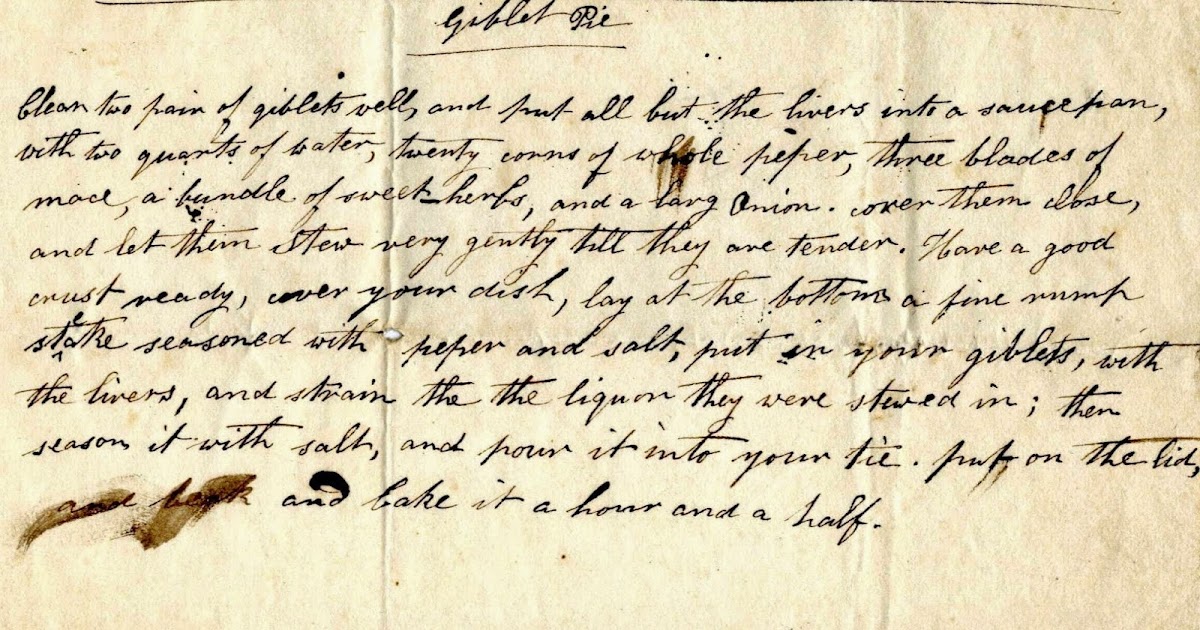 Giblet Pie
Clean two pair of giblets well, and put all but the livers into a saucepan,
with two quarts of water, twenty corns of whole peper, three blades of
mace, a bundle of sweet herbs, and a larg Onion. cover them close,
and let them Stew very gently till they are tender. Have a good
crust ready, cover your dish, lay at the bottom a fine rump
steake seasoned with peper and salt, put in your giblets, with
the livers, and strain the the liquor they were stewed in; then
season it with salt, and pour it into your tie. put on the lid,
and and bake it a hour and a half.